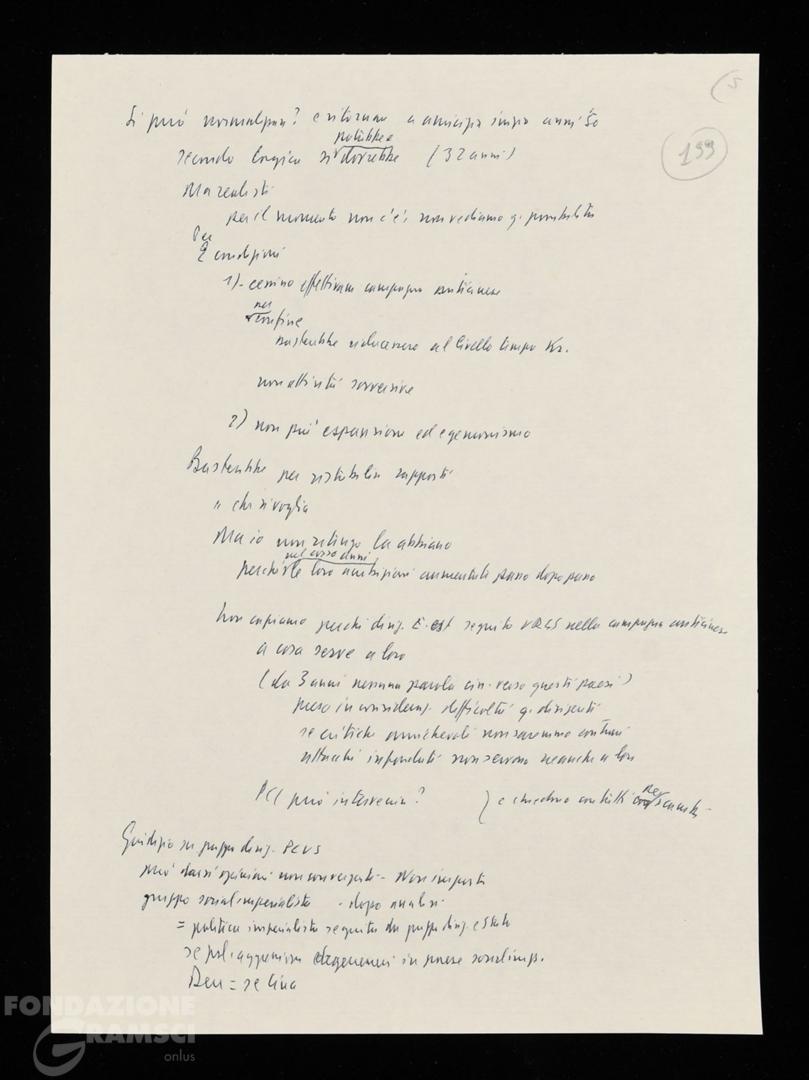 5
199
Si può normalizzare? e ritornare a amicizia inizio anni 50
politike e
secondo logica si dovrebbe (32 anni)
Ma realisti
per il momento non c'è, non vediamo q. possibilità
Per
2 condizioni
1) - cessino effettivam campagna anticinese
nei
confine
basterebbe riducessero al livello tempo Kr.
non attività sovversive
2) non più espansione ed egemonismo
Basterebbe per ristabilire rapporti
" chi si voglia
Ma io non ritengo la abbiano
nel corso anni
perché le loro ambizioni aumentate passo dopo passo
Non capiamo perché dirig. E. est seguito URSS nella campagna anticinese
a cosa serve a loro
(da 3 anni nessuna parola cin. verso questi paesi)
preso in consideraz. difficoltà q. dirigenti
se critiche amichevoli non saremmo contrari
attacchi infondati non servono neanche a loro
PCI può intervenire? } e chiedono contatti
Giudizio su gruppo dirig. PCUS
può darsi opinioni non convergenti - Non importa
gruppo socialimperialista - dopo analisi
= politica imperialista seguita da gruppo dirig. e Stato
se pol. aggressiva degenerare in paese socialimp.
Den = se Cina
FONDAZIONE
GRAMSCI
onlus